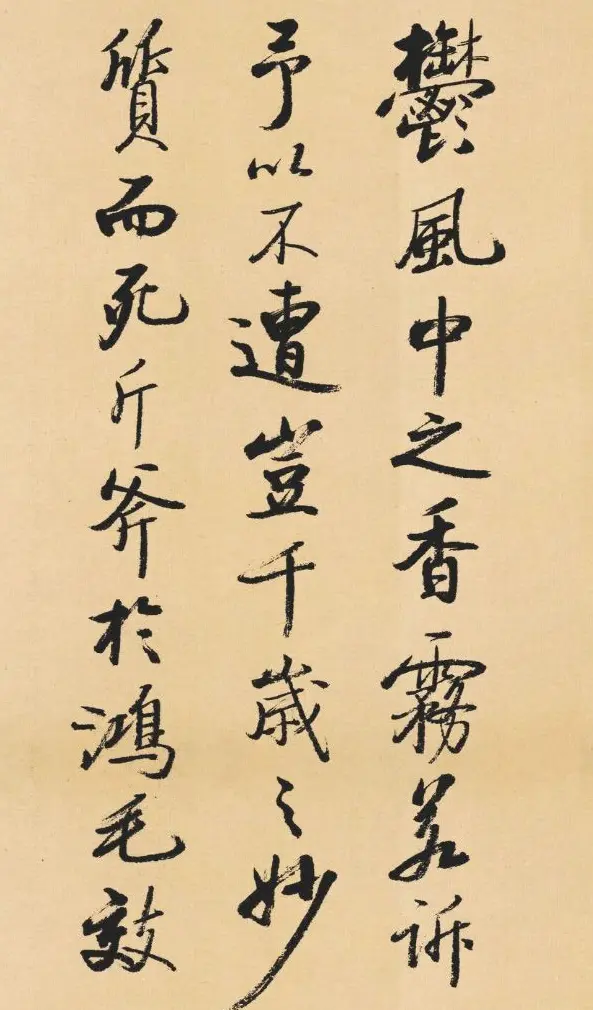 鬱風中之香霧若訴
予以不遭豈千歲之妙
質而死斤斧於鴻毛效